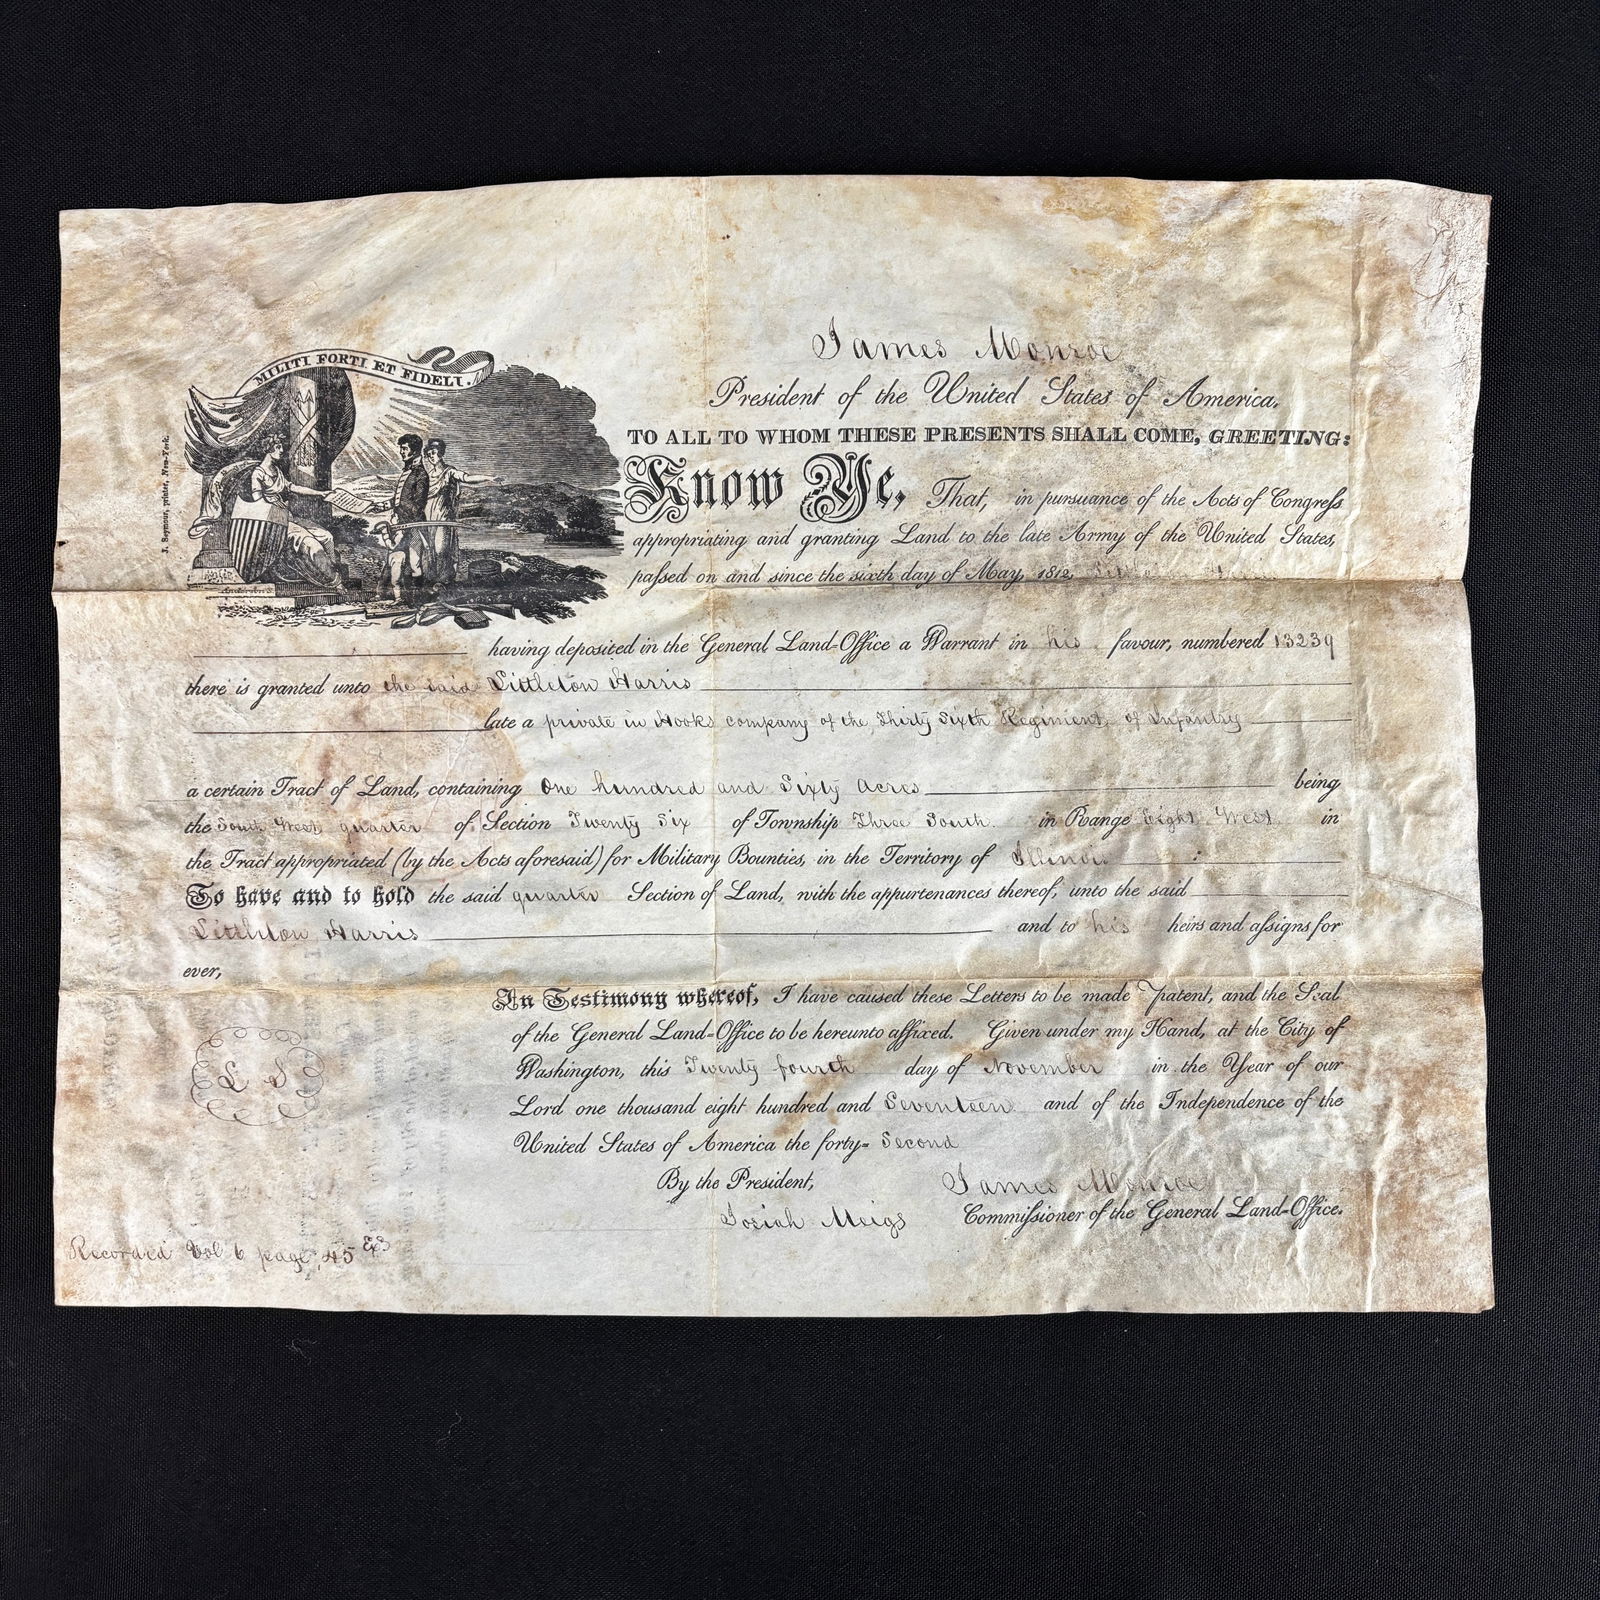 James Monroe
President of the United States of America.
MILITI FORTI ET FIDELI.
TO ALL TO WHOM THESE PRESENTS SHALL COME, GREETING:
Know Ye, That, in pursuance of the Acts of Congress
appropriating and granting Land to the late Army of the United States,
passed on and since the sixth day of May, 1812,
J. Seymour, printer, New-York.
having deposited in the General Land-Office a Warrant in his favour, numbered 13239
there is granted unto the said Littleton Harris
late a private in Hooks company of the Thirty Sixth Regiment of Infantry
a certain Tract of Land, containing One hundred and Sixty Acres being
the South West quarter of Section Twenty Six of Township Three South in Range Eight West in
the Tract appropriated (by the Acts aforesaid) for Military Bounties, in the Territory of Illinois
To have and to hold the said quarter Section of Land, with the appurtenances thereof, unto the said
Littleton Harris and to his heirs and assigns for
ever,
In Testimony whereof, I have caused these Letters to be made Patent, and the Seal
of the General Land-Office to be hereunto affixed. Given under my Hand, at the City of
Washington, this Twenty fourth day of November in the Year of our
Lord one thousand eight hundred and Seventeen and of the Independence of the
United States of America the forty-Second
L S
By the President, James Monroe
Josiah Meigs Commissioner of the General Land-Office.
Recorded Vol 6 page, 45